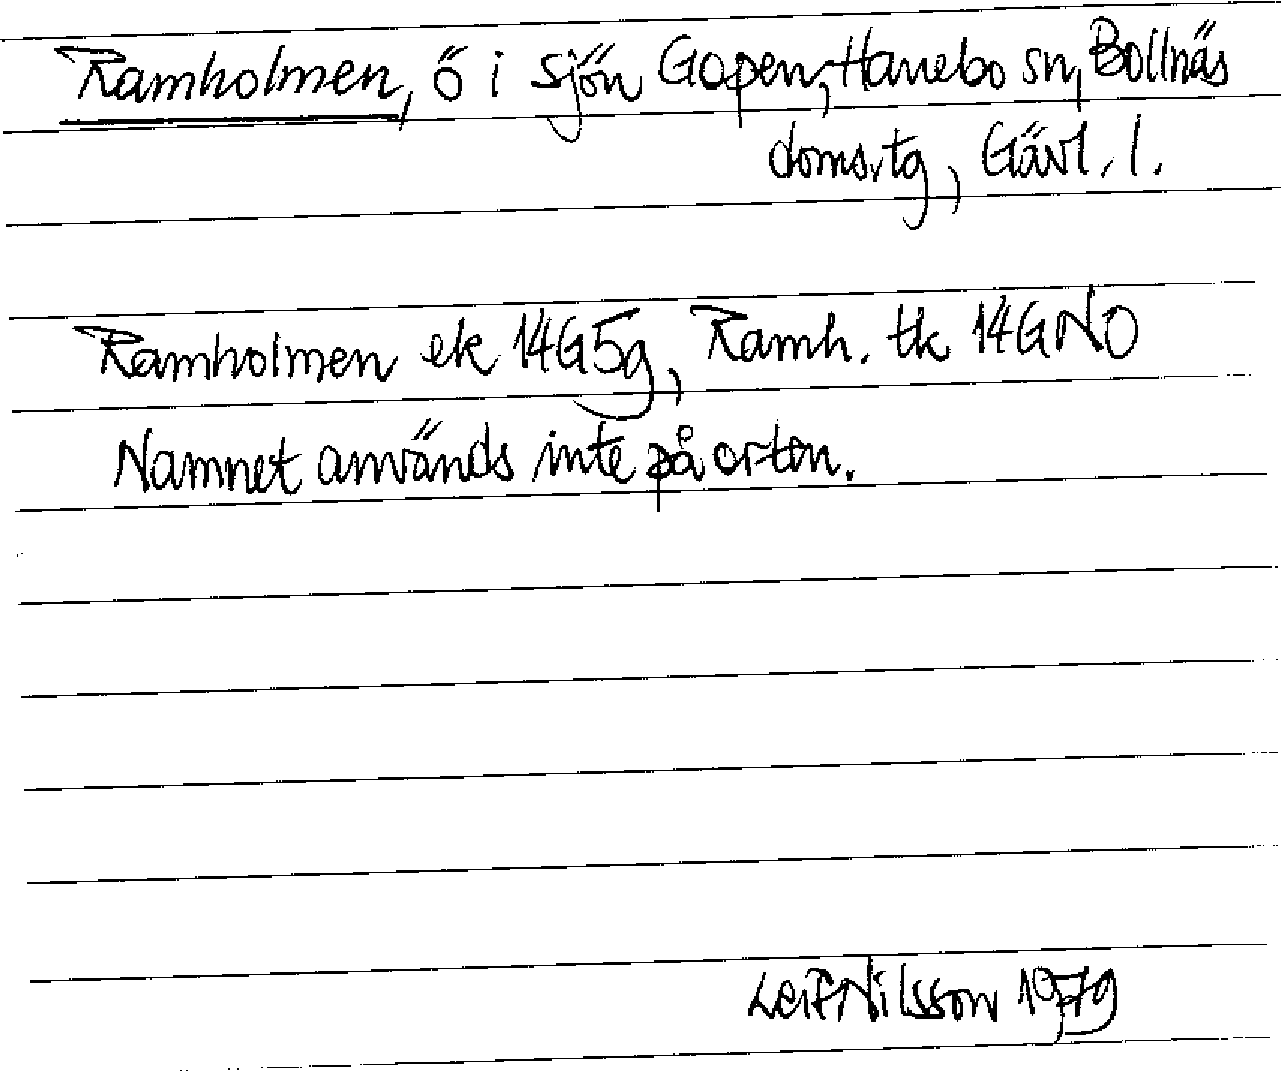 Ramholmen, ö i sjön Gopen, Hanebo sn, Bollnäs
domsvtg, Gävl. l.
Ramholmen ek 14G5g, Ramh. tk 14GNO
Namnet används inte på orten.
Leif Nilsson 1979